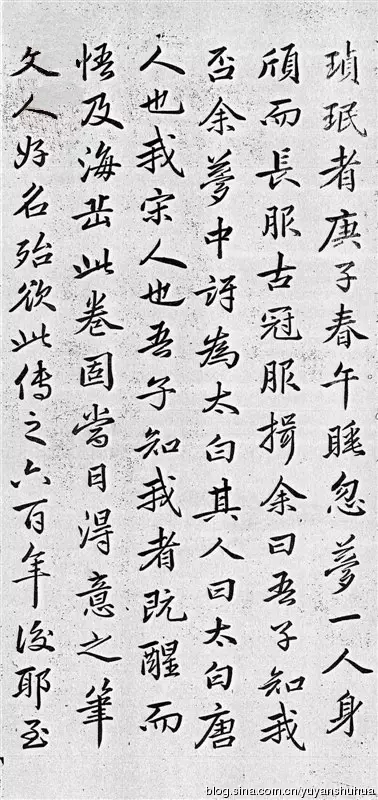 瑱珉者庚子春午睡忽夢一人身
頎而長服古冠服揖余曰吾子知我
否余夢中訝為太白其人曰太白唐
人也我宋人也吾子知我者既醒而
悟及海岳此卷固當日得意之筆
文人好名殆欲此傳之六百年後耶至
blog.sina.com.cn/yuyanshuhua